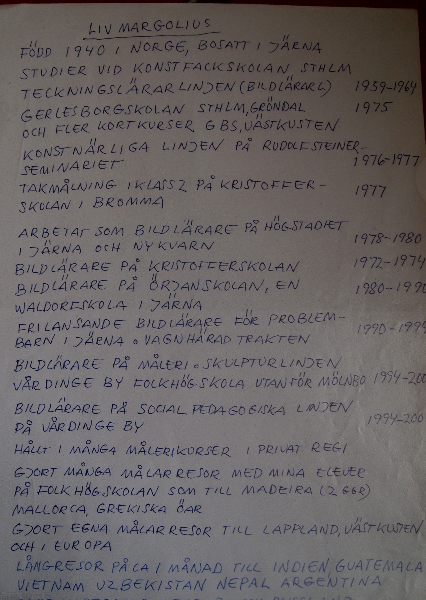 LIV MARGOLIUS
FÖDD 1940 I NORGE, BOSATT I JÄRNA
STUDIER VID KONSTFACKSKOLAN STHLM
TECKNINGSLÄRARLINJEN (BILDLÄRARL) 1959-1964
GERLESBORGSKOLAN STHLM, GRÖNDAL 1975
OCH FLER KORTKURSER GBS, VÄSTKUSTEN
KONSTNÄRLIGA LINJEN PÅ RUDOLF STEINER-
SEMINARIET 1976-1977
TAKMÅLNING I KLASS 2 PÅ KRISTOFFER- 1977
SKOLAN I BROMMA
ARBETAT SOM BILDLÄRARE PÅ HÖGSTADIET
I JÄRNA OCH NYKVARN 1978-1980
BILDLÄRARE PÅ KRISTOFFERSKOLAN 1972-1974
BILDLÄRARE PÅ ÖRJANSKOLAN, EN 1980-1990
WALDORFSKOLA I JÄRNA
FRILANSANDE BILDLÄRARE FÖR PROBLEM- 1990-1994
BARN I JÄRNA o VAGNHÄRAD TRAKTEN
BILDLÄRARE PÅ MÅLERI o SKULPTURLINJEN
VÅRDINGE BY FOLKHÖGSKOLA UTANFÖR MÖLNBO 1994-200
BILDLÄRARE PÅ SOCIAL PEDAGOGISKA LINJEN
PÅ VÅRDINGE BY 1994-200
HÅLLT I MÅNGA MÅLERIKURSER I PRIVAT REGI
GJORT MÅNGA MÅLARRESOR MED MINA ELEVER
PÅ FOLKHÖGSKOLAN SOM TILL MADEIRA (2 GGR)
MALLORCA, GREKISKA ÖAR
GJORT EGNA MÅLARRESOR TILL LAPPLAND, VÄSTKUSTEN
OCH I EUROPA
LÅNGRESOR PÅ CA 1 MÅNAD TILL INDIEN, GUATEMALA
VIETNAM UZBEKISTAN NEPAL ARGENTINA